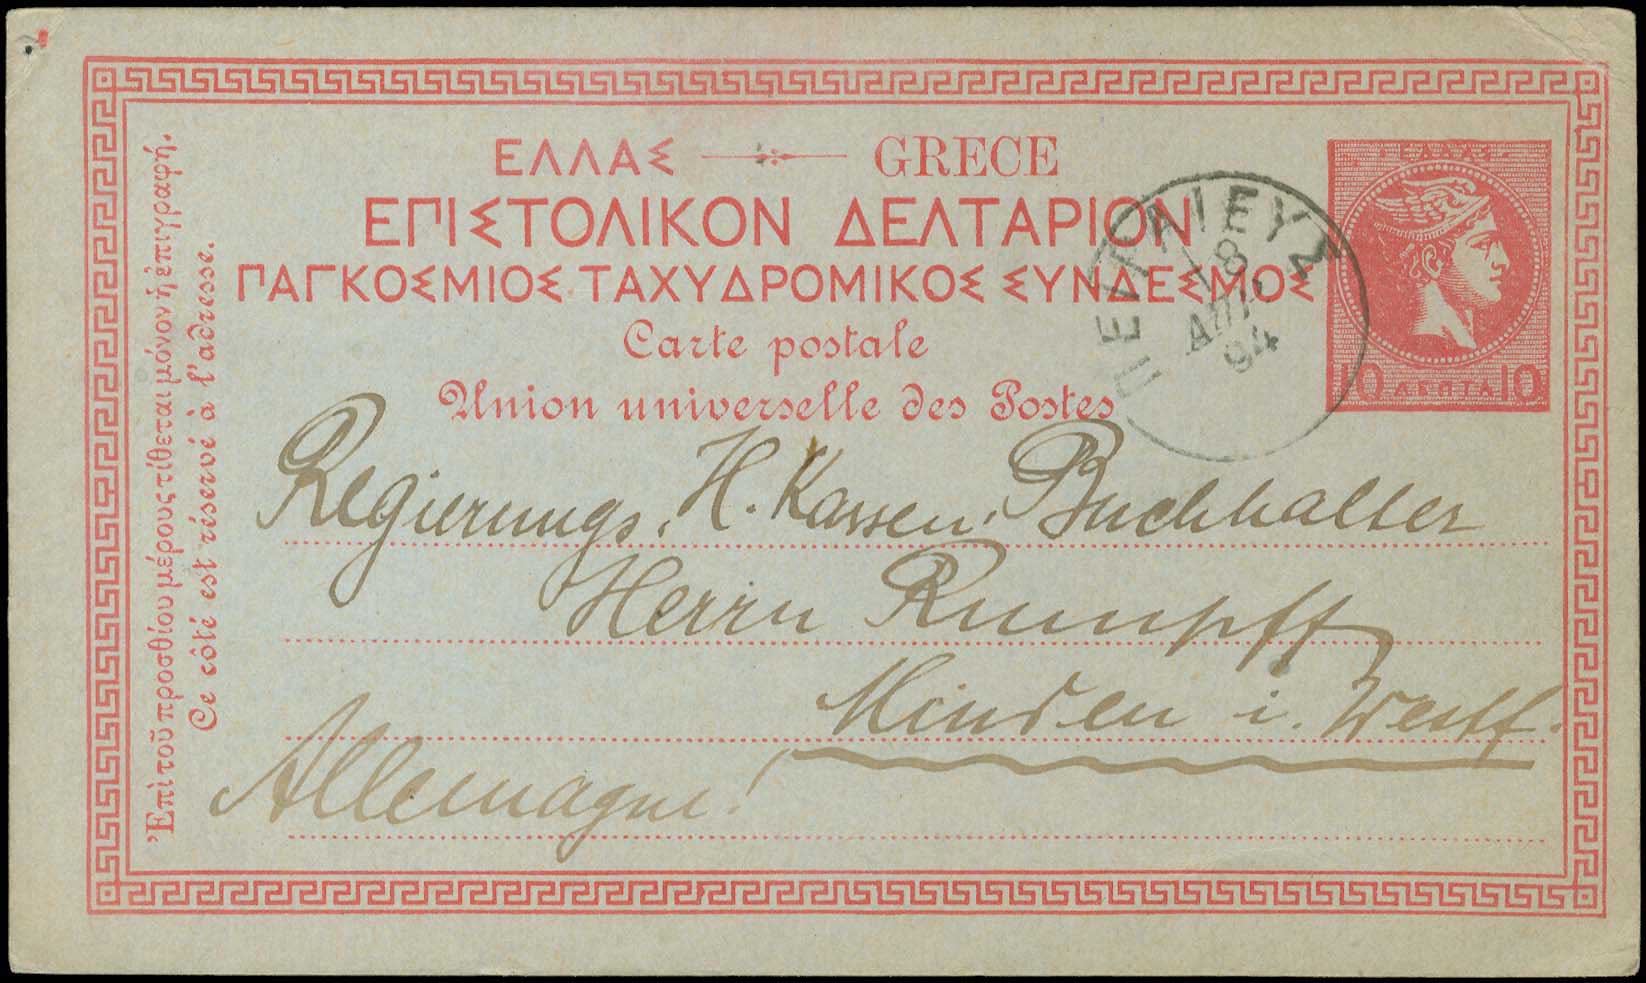 ΕΛΛΑΣ GRECE
ΕΠΙΣΤΟΛΙΚΟΝ ΔΕΛΤΑΡΙΟΝ
ΠΑΓΚΟΣΜΙΟΣ ΤΑΧΥΔΡΟΜΙΚΟΣ ΣΥΝΔΕΣΜΟΣ
Carte postale
Union universelle des Postes
Ἐπὶ τοῦ προσθίου μέρους τίθεται μόνον ἡ ἐπιγραφή.
Ce côté est réservé à l'adresse.
ΠΕΙΡΑΙΕΥΣ
18
ΑΠΡ
94
10 ΛΕΠΤΑ 10
Regierungs. H. Kassen. Buchhalter
Herrn Rumpff
Minden i. Westf.
Allemagne!